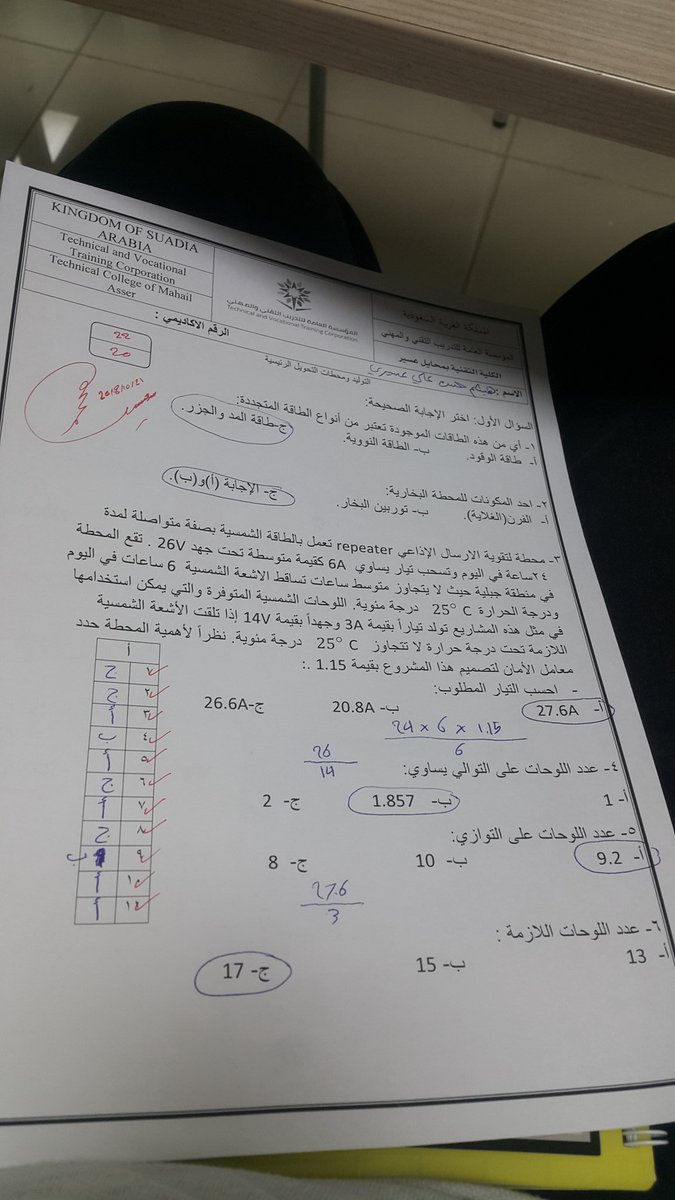 KINGDOM OF SUADIA
ARABIA
Technical and Vocational
Training Corporation
Technical College of Mahail
Asser
المؤسسة العامة للتدريب التقني والمهني
Technical and Vocational Training Corporation
المملكة العربية السعودية
المؤسسة العامة للتدريب التقني والمهني
الكلية التقنية بمحايل عسير
الرقم الاكاديمي :
الاسم : علي عسيري
٢٢
٢٠
2018/10/21
التوليد ومحطات التحويل الرئيسية
السؤال الأول: اختر الإجابة الصحيحة:
١- أي من هذه الطاقات الموجودة تعتبر من أنواع الطاقة المتجددة:
أ- طاقة الوقود. ب- الطاقة النووية. ج-طاقة المد والجزر.
٢- احد المكونات للمحطة البخارية:
أ- الفرن(الغلاية). ب- توربين البخار. ج- الإجابة (أ)و(ب).
٣- محطة لتقوية الارسال الإذاعي repeater تعمل بالطاقة الشمسية بصفة متواصلة لمدة
٢٤ساعة في اليوم وتسحب تيار يساوي 6A كقيمة متوسطة تحت جهد 26V . تقع المحطة
في منطقة جبلية حيث لا يتجاوز متوسط ساعات تساقط الاشعة الشمسية 6 ساعات في اليوم
ودرجة الحرارة 25° C درجة مئوية. اللوحات الشمسية المتوفرة والتي يمكن استخدامها
في مثل هذه المشاريع تولد تياراً بقيمة 3A وجهداً بقيمة 14V إذا تلقت الأشعة الشمسية
اللازمة تحت درجة حرارة لا تتجاوز 25° C درجة مئوية. نظراً لأهمية المحطة حدد
معامل الأمان لتصميم هذا المشروع بقيمة 1.15 .:
- احسب التيار المطلوب:
أ- 27.6A ب- 20.8A ج- 26.6A
24 × 6 × 1.15
6
٤- عدد اللوحات على التوالي يساوي:
26
14
أ- 1 ب- 1.857 ج- 2
٥- عدد اللوحات على التوازي:
أ- 9.2 ب- 10 ج- 8
27.6
3
٦- عدد اللوحات اللازمة :
أ- 13 ب- 15 ج- 17
أ
١ ج
٢ ج
٣ أ
٤ ب
٥ أ
٦ ج
٧ أ
٨ ج
٩ ب
١٠ أ
أ